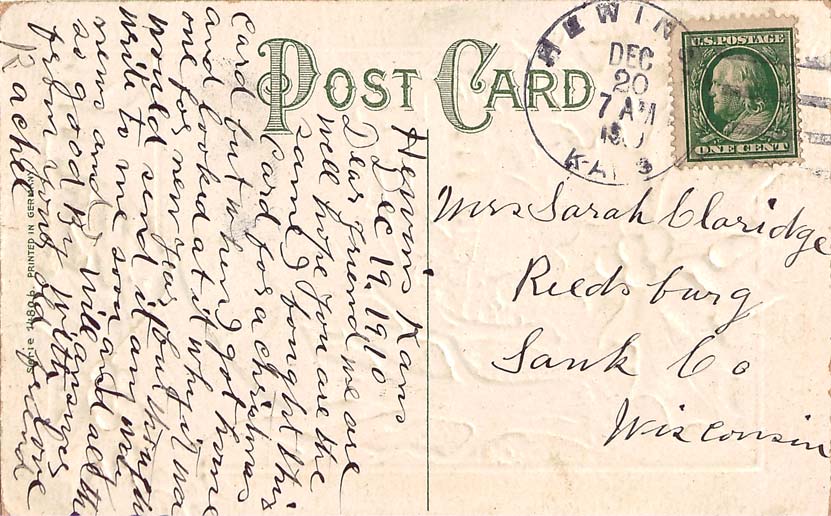 POST CARD
HEWIN
DEC
20
7 AM
KANS
U.S. POSTAGE
ONE CENT
Hewins Kans
Dec 19, 1910
Dear friend we are
well hope you are the
same, I bought this
Card for a christmas
card but when I got home
and looked at it why it was
one for new year but thought
would send it am
write to me soon and all the
news and I will answer
so good By with love
from your old friend
Rachel
Mrs Sarah Claridge
Reedsburg
Sauk Co
Wisconsin
Serie 1480 b. PRINTED IN GERMANY